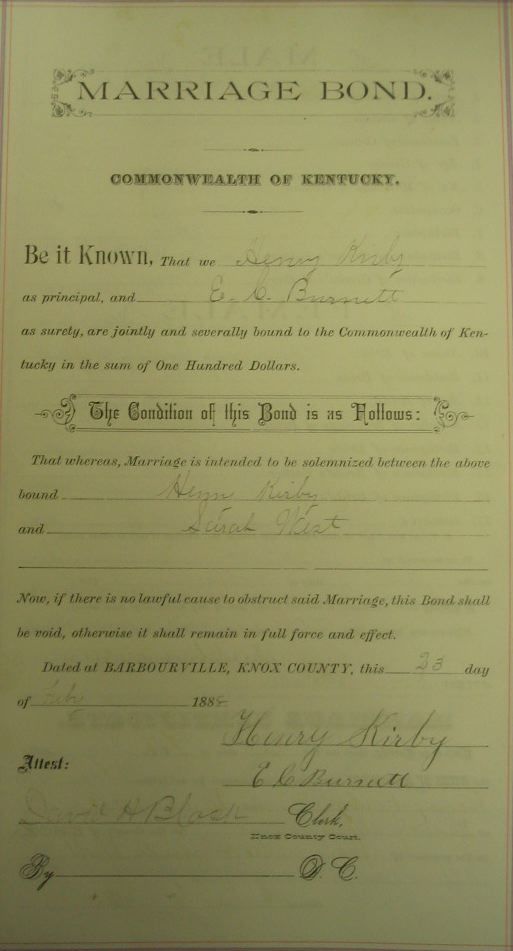 MARRIAGE BOND.
COMMONWEALTH OF KENTUCKY.
Be it Known, That we Henry Kirby
as principal, and E. C. Burnett
as surety, are jointly and severally bound to the Commonwealth of Ken-
tucky in the sum of One Hundred Dollars.
The Condition of this Bond is as Follows:
That whereas, Marriage is intended to be solemnized between the above
bound Henry Kirby
and Sarah West
Now, if there is no lawful cause to obstruct said Marriage, this Bond shall
be void, otherwise it shall remain in full force and effect.
Dated at BARBOURVILLE, KNOX COUNTY, this 23 day
of Feby 188
Henry Kirby
Attest:
E C Burnett
David H Clerk,
Knox County Court.
By D. C.